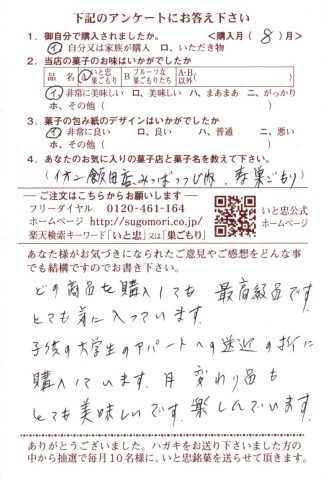 下記のアンケートにお答え下さい
1. 御自分で購入されましたか。 <購入月( 8 )月>
イ. 自分又は家族が購入 ロ. いただき物
2. 当店の菓子のお味はいかがでしたか
品名 A いと忠巣ごもり B フルーツな巣ごもりたち A・B以外( )
イ. 非常に美味しい ロ、美味しい ハ、まあまあ ニ、がっかり
ホ、その他( )
3. 菓子の包み紙のデザインはいかがでしたか
イ. 非常に良い ロ、良い ハ、普通 ニ、悪い
ホ、その他( )
4. あなたのお気に入りの菓子店と菓子名を教えて下さい。
(イオン飯田店 、巣ごもり)
ご注文はこちらからお願いします
フリーダイヤル 0120-461-164
ホームページ http://sugomori.co.jp/
楽天検索キーワード「いと忠」又は「巣ごもり」
いと忠公式
ホームページ
あなた様がお気づきになられたご意見やご感想をどんな事
でも結構ですのでお書き下さい。
どの商品を購入しても 最高級品です
とても気に入っています。
子供の大学生のアパートへの送迎の折に
購入しています。月 変わり品も
とても美味しいです。楽しんでいます。
ありがとうございました。ハガキをお送り下さいました方の
中から抽選で毎月10名様に、いと忠銘菓を送らせて頂きます。